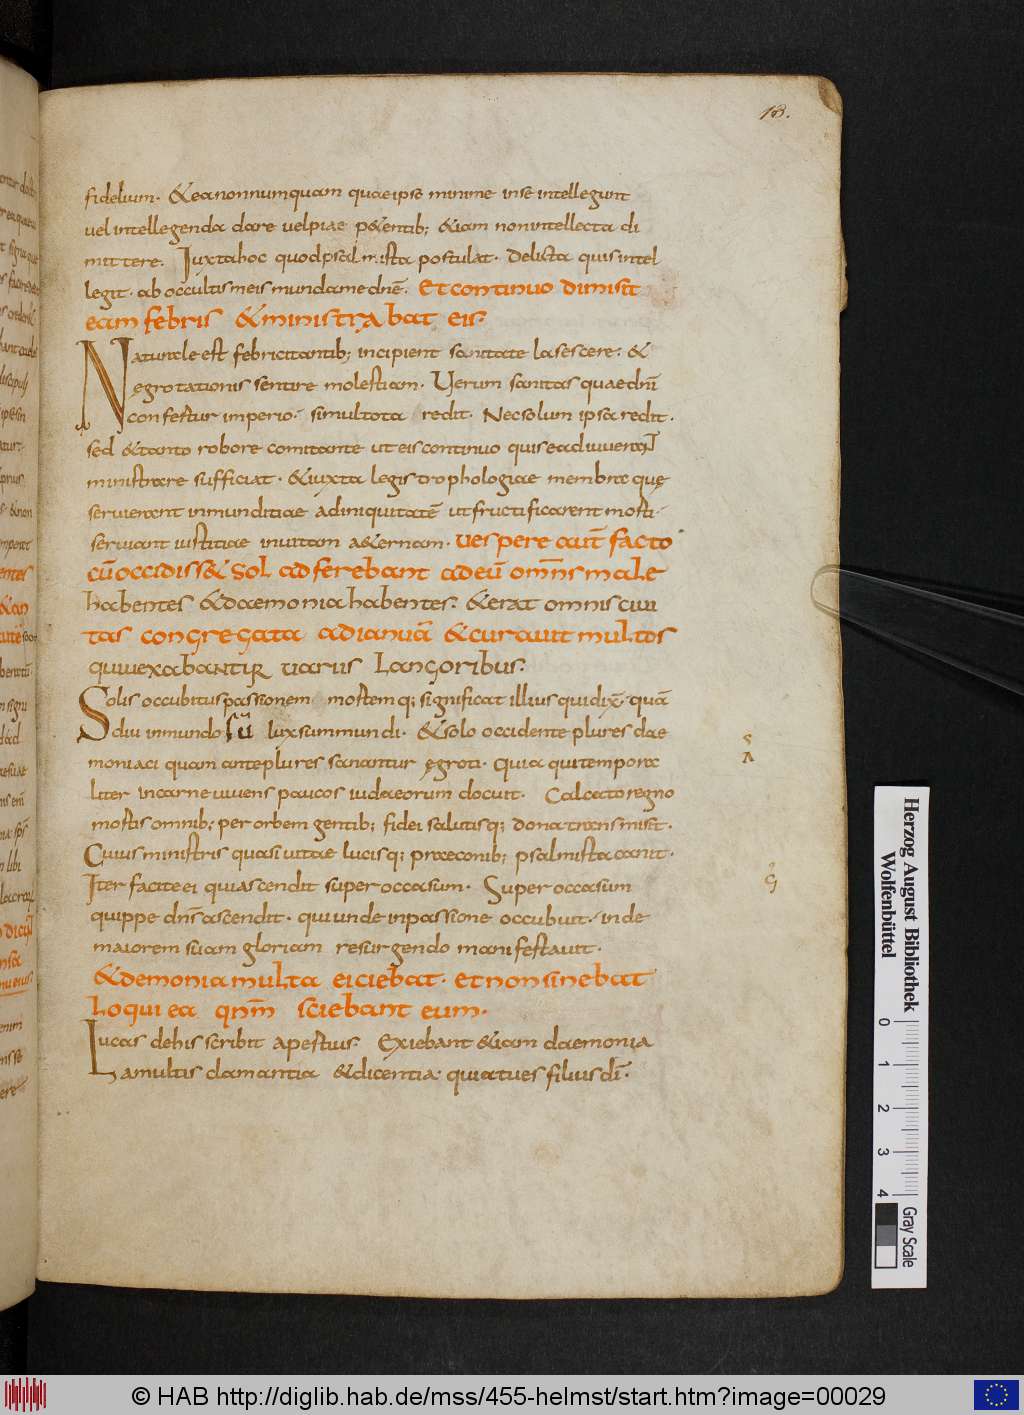 18.
fidelium. & ea non numquam quae ipse minime inse intellegunt
uel intellegenda dare uel piae p&entib; &iam non intellecta di
mittere. Iuxta hoc quod psalmista postulat. Delicta quis intel
legit. ab occultis meis munda me dn̄e. Et continuo dimisit
eam febris & ministrabat eis.
Naturale est febricitantib; incipient sanitate lasescere. &
ęgrotationis sentire molestiam. Uerum sanitas quae dn̄i
confestur imperio. simul tota redit. Nec solum ipsa redit.
sed & tanto robore comitante ut eis continuo quise adiuuerant
ministrare sufficiat. & iuxta legis trophologiae membra quę
seruierant inmunditiae ad iniquitatē ut fructificarent morti.
seruiant iustitiae inuitam a&ernam. Uespere aut̄ facto
cū occidiss& sol adferebant ad eū omn̄s male
habentes & daemonia habentes. & erat omnis ciui
tas congregata ad ianuā & curauit multos
qui uexabantur uariis langoribus.
Solis occubitus passionem mortemq; significat illius qui dix̄. quā
diu inmundo sū lux sum mundi. & solo occidente plures dae
moniaci quam ante plures sanantur ęgroti. Quia qui tempora
liter in carne uiuens paucos iudaeorum docuit. Calcato regno
mortis omnib; per orbem gentib; fidei salutisq; dona transmisit.
Cuius ministris quasi uitae lucisq; praeconib; psalmista canit.
Iter facite ei qui ascendit super occasum. Super occasum
quippe dn̄s ascendit. qui unde in passione occubuit. inde
maiorem suam gloriam resurgendo manifestauit.
& demonia multa eiciebat. et non sinebat
loqui ea qn̄m sciebant eum.
Lucas de his scribit apertius. Exiebant &iam daemonia
a multis clamantia & dicentia. quia tu es filius dī.
Herzog August Bibliothek
Wolfenbüttel
0 1 2 3 4
Gray Scale
© HAB http://diglib.hab.de/mss/455-helmst/start.htm?image=00029